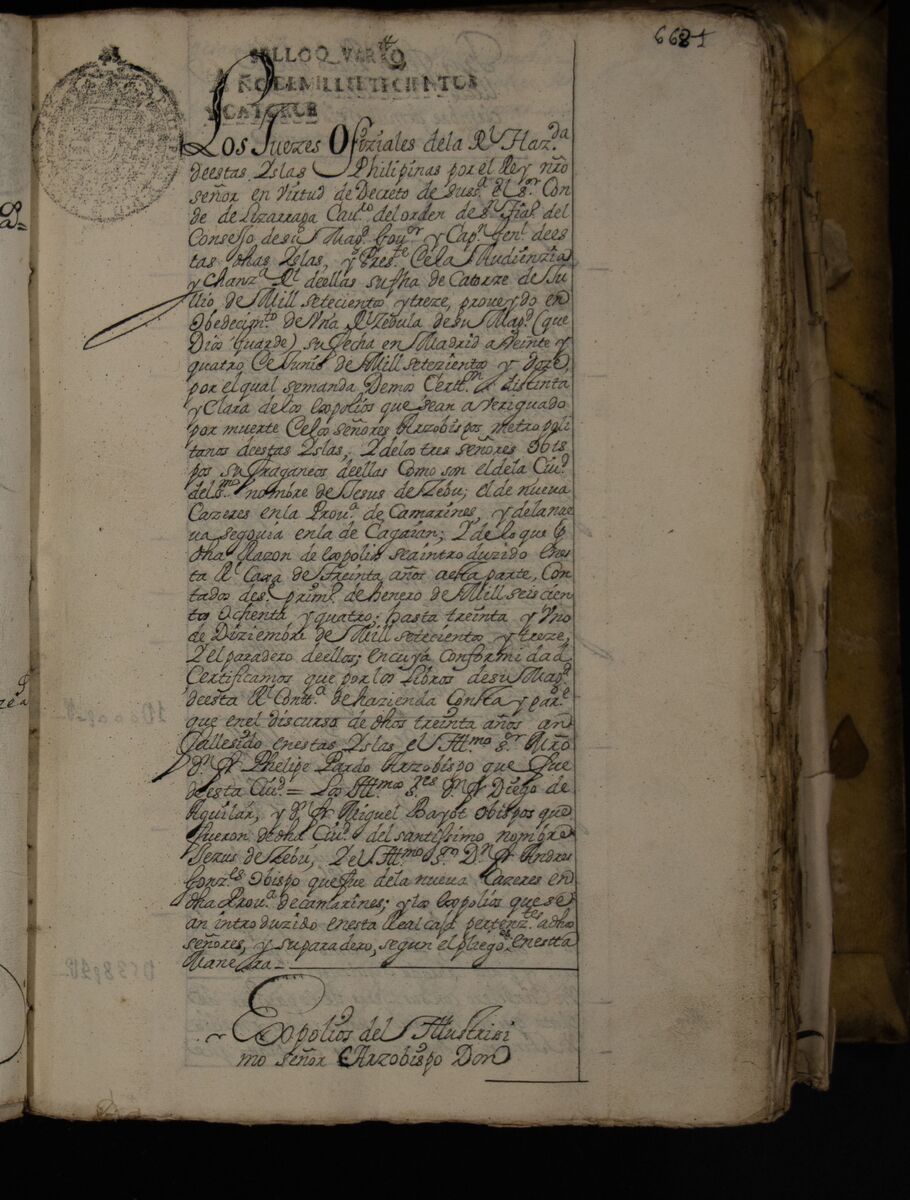 6681
SELLO QVARTO
AÑO DE MIL SETECIENTOS
Y CATORCE
Los Juezes Ofiziales dela Rl Hazda
deestas Yslas Philipinas por el Rey nro
señor en Virtud de Decreto de susa el sor Con
de de Lizarraga Cauro del orden de sn Tiago del
Consejo, de su Magd Gour y Capn Genl dees
tas dhas Yslas, y Preste dela Audienzia
y Chanza Rl deellas su fha de Catorze de Ju
llio de Mill setecientos y treze, proveydo en
Obedecimto de Vna Rl Zedula de su Magd (que
Dios guarde) su fecha en Madrid a Veinte y
quatro de Junio de Mill setezientos y doze,
por el qual semanda Demos Certtn distinta
y Clara delos expolios que sean averiguado
por muerte delos señores Arzobispos metropoli
tanos deestas Yslas, Y delos tres señores Obis
pos sufraganeos deellas Como son el dela Ciud
del smo nombre de Jesus de Zebu; el de nueva
Cazeres en la Proua de Camarines, y dela nue
ua segouia en la de Cagaian; Y de lo que p
dha Razon de expolios sea introduzido enes
ta Rl Caxa de treinta años aesta parte, Con
tados desde primo de henero de Mill seiscien
tos Ochenta y quatro; hasta treinta y Vno
de Diziembre de Mill setecientos y treze,
Y el paradero deellos; en cuya conformidad
Certificamos que por los Libros de su Magd
deesta Rl Contta de hazienda Consta y pare
que en el discurso de dhos treinta años an
fallesido enestas Yslas el Illmo sor Mro
Dn fr Phelipe Pardo Arzobispo que fue
deesta Ciud = Los Illmos sres Dn fr Diego de
Aguilar, y Dn fr Miguel Bayot Obispos que
fueron de dha Ciud del santissimo nombre
Jezus de Zebu, Y el Illmo sor Dn fr Andres
Gonzes Obispo que fue dela nueva Cazeres en
dha Proua de camarines; y los expolios que se
an introduzido enesta Real caja pertenztes a dhos
señores, y su paradero, segun el pliego enestta
Manera
Expolios del Illustrisi
mo señor Arzobispo Don